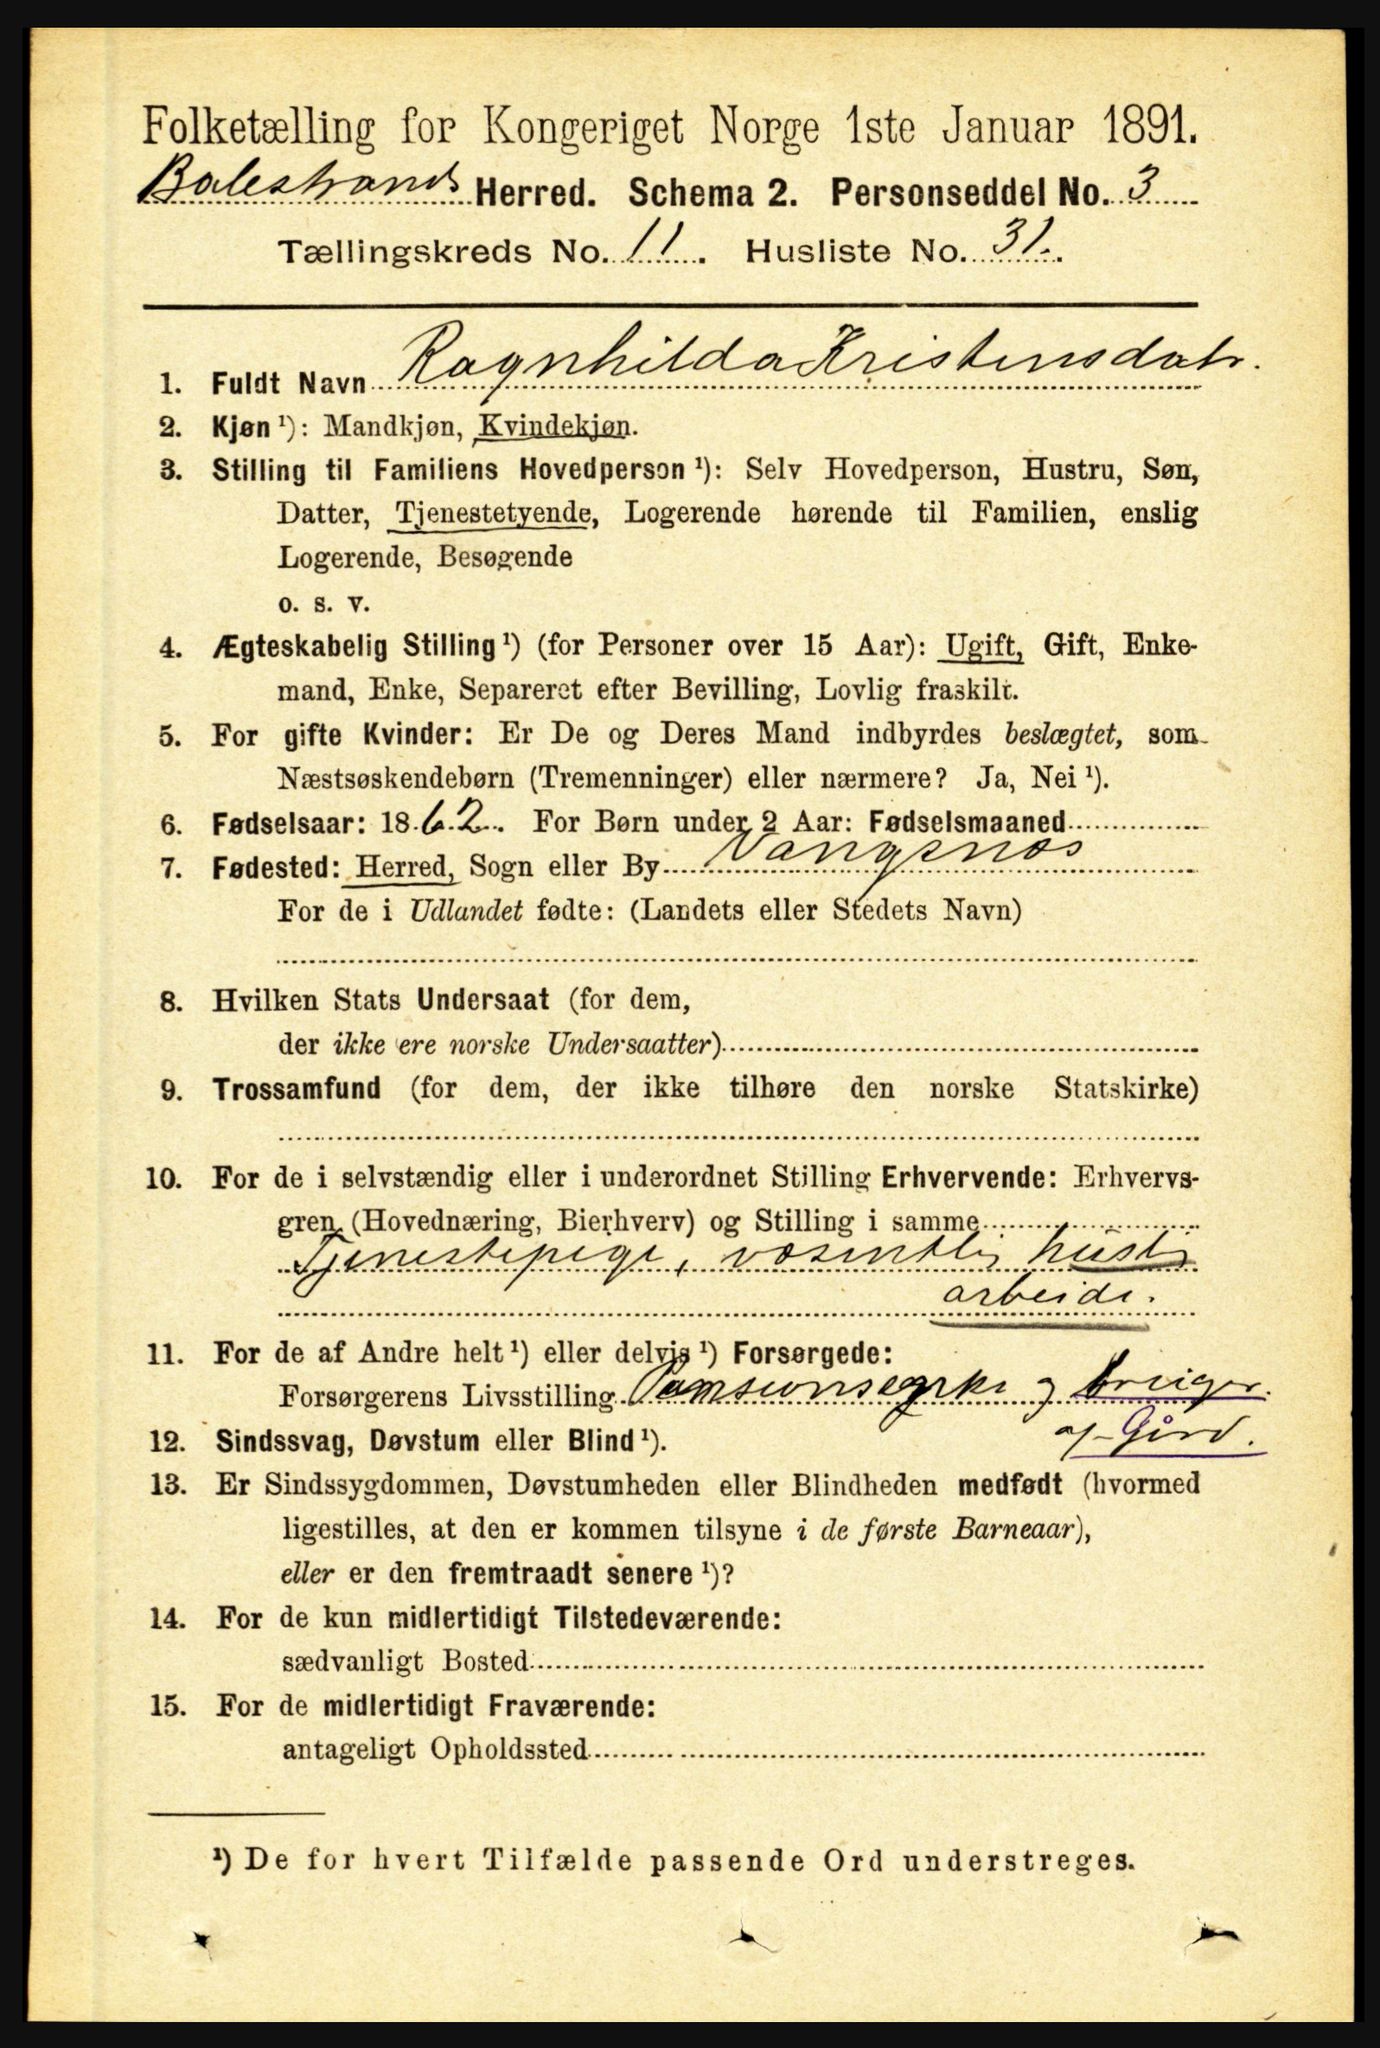 Folketælling for Kongeriget Norge 1ste Januar 1891.
Balestrands Herred. Schema 2. Personseddel No. 3
Tællingskreds No. 11. Husliste No. 31.
1. Fuldt Navn Ragnhilda Kristensdatr.
2. Kjøn ¹): Mandkjøn, Kvindekjøn.
3. Stilling til Familiens Hovedperson ¹): Selv Hovedperson, Hustru, Søn,
Datter, Tjenestetyende, Logerende hørende til Familien, enslig
Logerende, Besøgende
o. s. v.
4. Ægteskabelig Stilling ¹) (for Personer over 15 Aar): Ugift, Gift, Enke-
mand, Enke, Separeret efter Bevilling, Lovlig fraskilt.
5. For gifte Kvinder: Er De og Deres Mand indbyrdes beslægtet, som
Næstsøskendebørn (Tremenninger) eller nærmere? Ja, Nei ¹).
6. Fødselsaar: 1862. For Børn under 2 Aar: Fødselsmaaned
7. Fødested: Herred, Sogn eller By Vangsnæs
For de i Udlandet fødte: (Landets eller Stedets Navn)
8. Hvilken Stats Undersaat (for dem,
der ikke ere norske Undersaatter)
9. Trossamfund (for dem, der ikke tilhøre den norske Statskirke)
10. For de i selvstændig eller i underordnet Stilling Erhvervende: Erhvervs-
gren (Hovednæring, Bierhverv) og Stilling i samme
Tjenestepige, væsentlig huslig
arbeide.
11. For de af Andre helt ¹) eller delvis ¹) Forsørgede:
Forsørgerens Livsstilling og bruiger.
af Gård.
12. Sindssvag, Døvstum eller Blind ¹).
13. Er Sindssygdommen, Døvstumheden eller Blindheden medfødt (hvormed
ligestilles, at den er kommen tilsyne i de første Barneaar),
eller er den fremtraadt senere ¹)?
14. For de kun midlertidigt Tilstedeværende:
sædvanligt Bosted
15. For de midlertidigt Fraværende:
antageligt Opholdssted
¹) De for hvert Tilfælde passende Ord understreges.